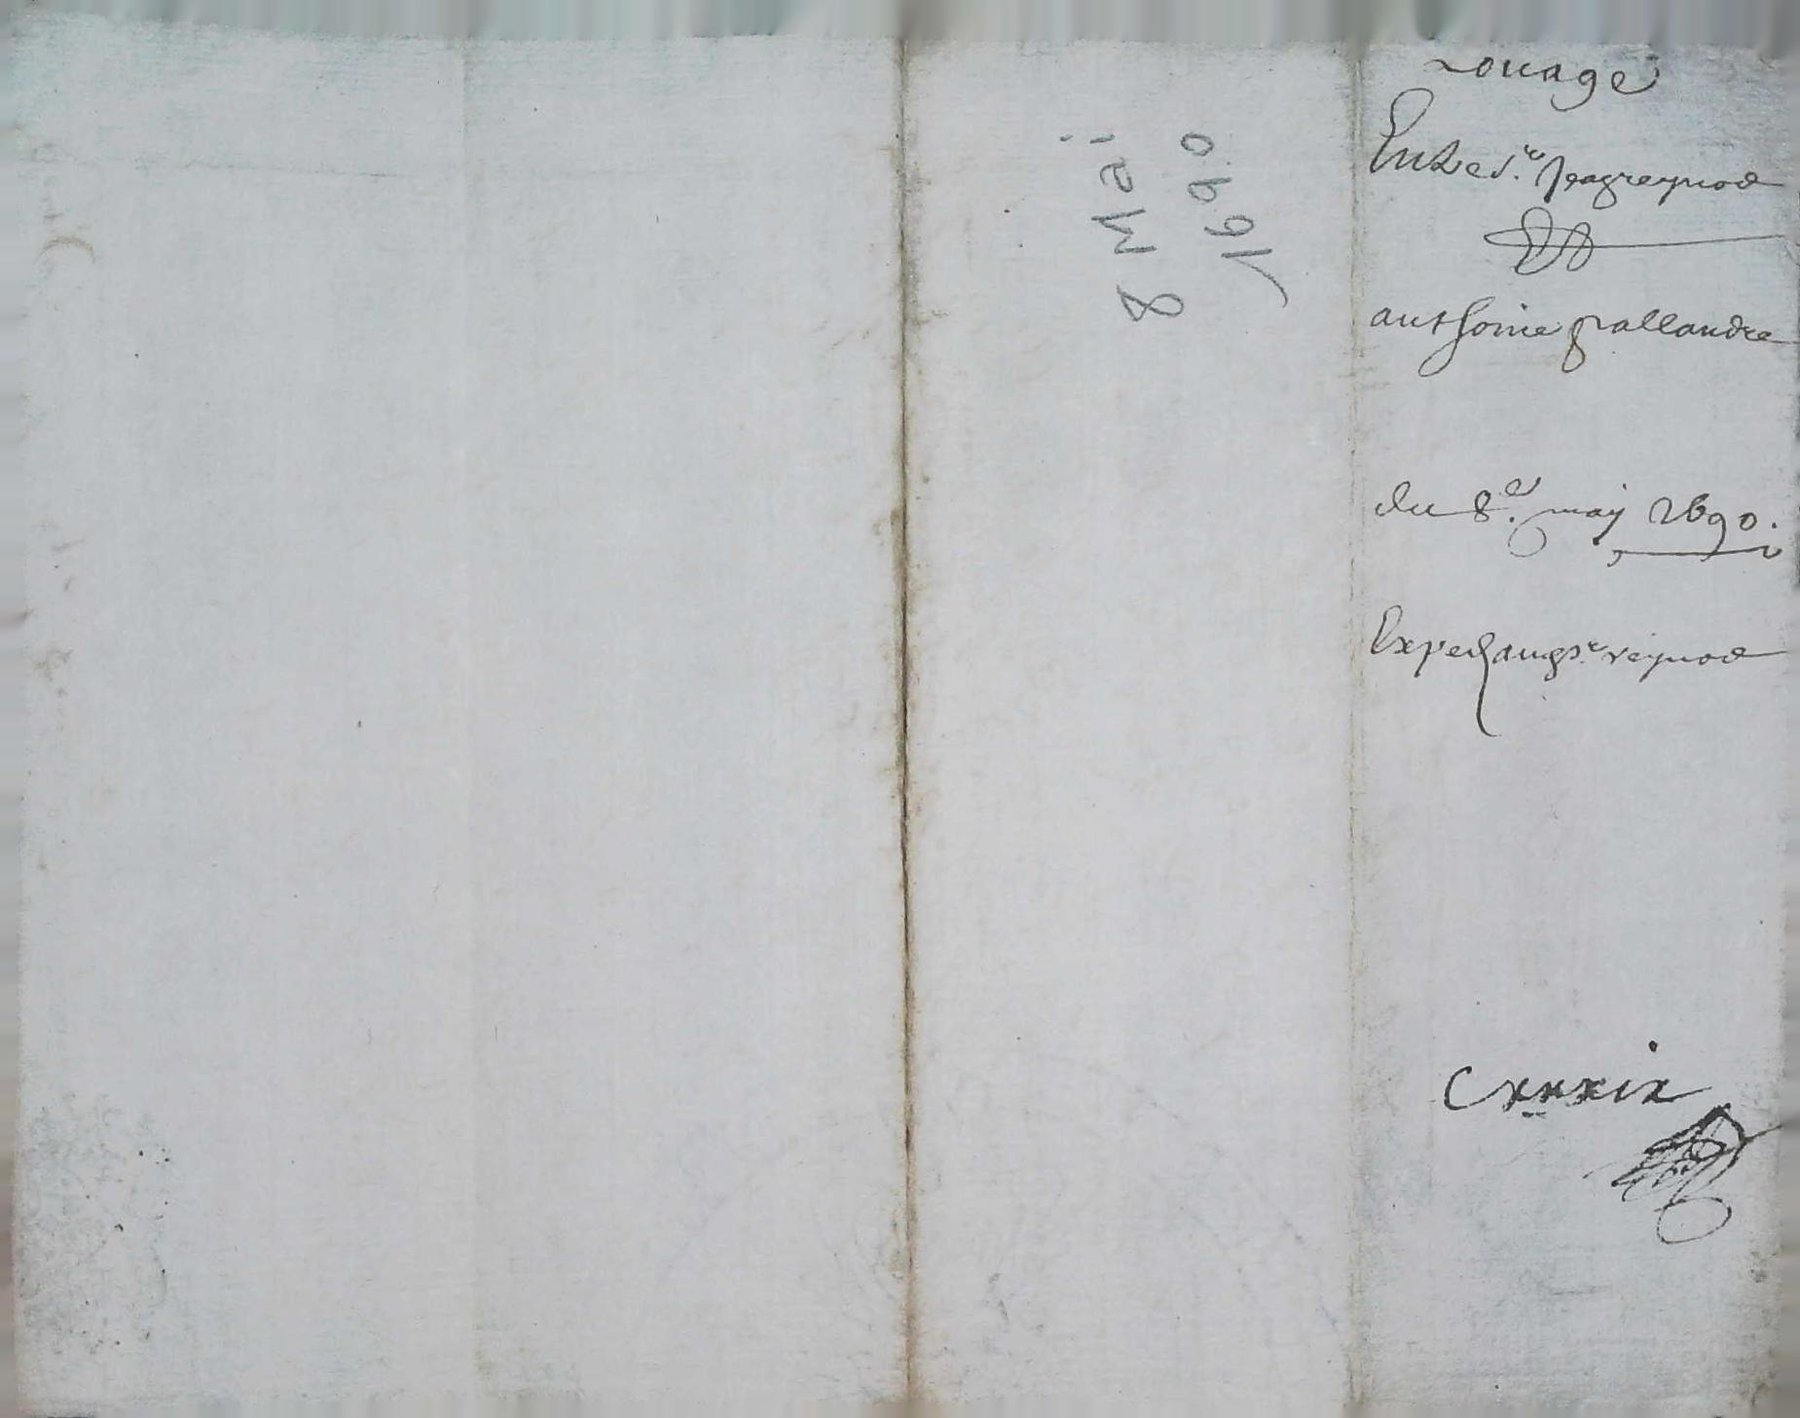 8 Mai
1690
Louage
Entre sr. Jeag reynod
anthoine gallandre
du 8e. may 1690.
Exped aud sr. reynod
Cxxxix